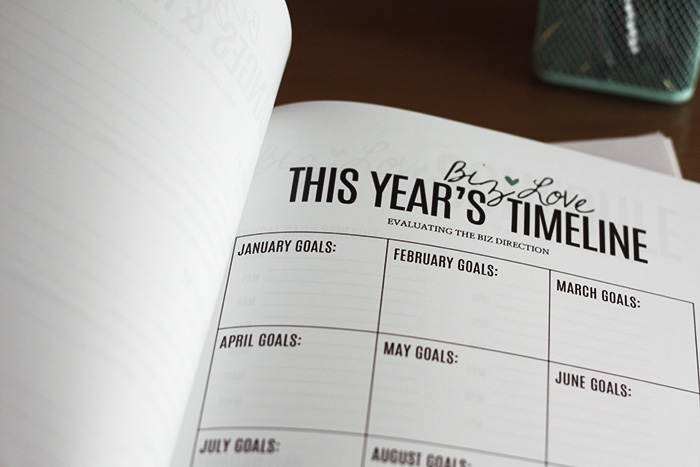 Biz Love
THIS YEAR'S TIMELINE
EVALUATING THE BIZ DIRECTION
JANUARY GOALS:
FEBRUARY GOALS:
MARCH GOALS:
APRIL GOALS:
MAY GOALS:
JUNE GOALS:
JULY GOALS:
AUGUST GOALS: